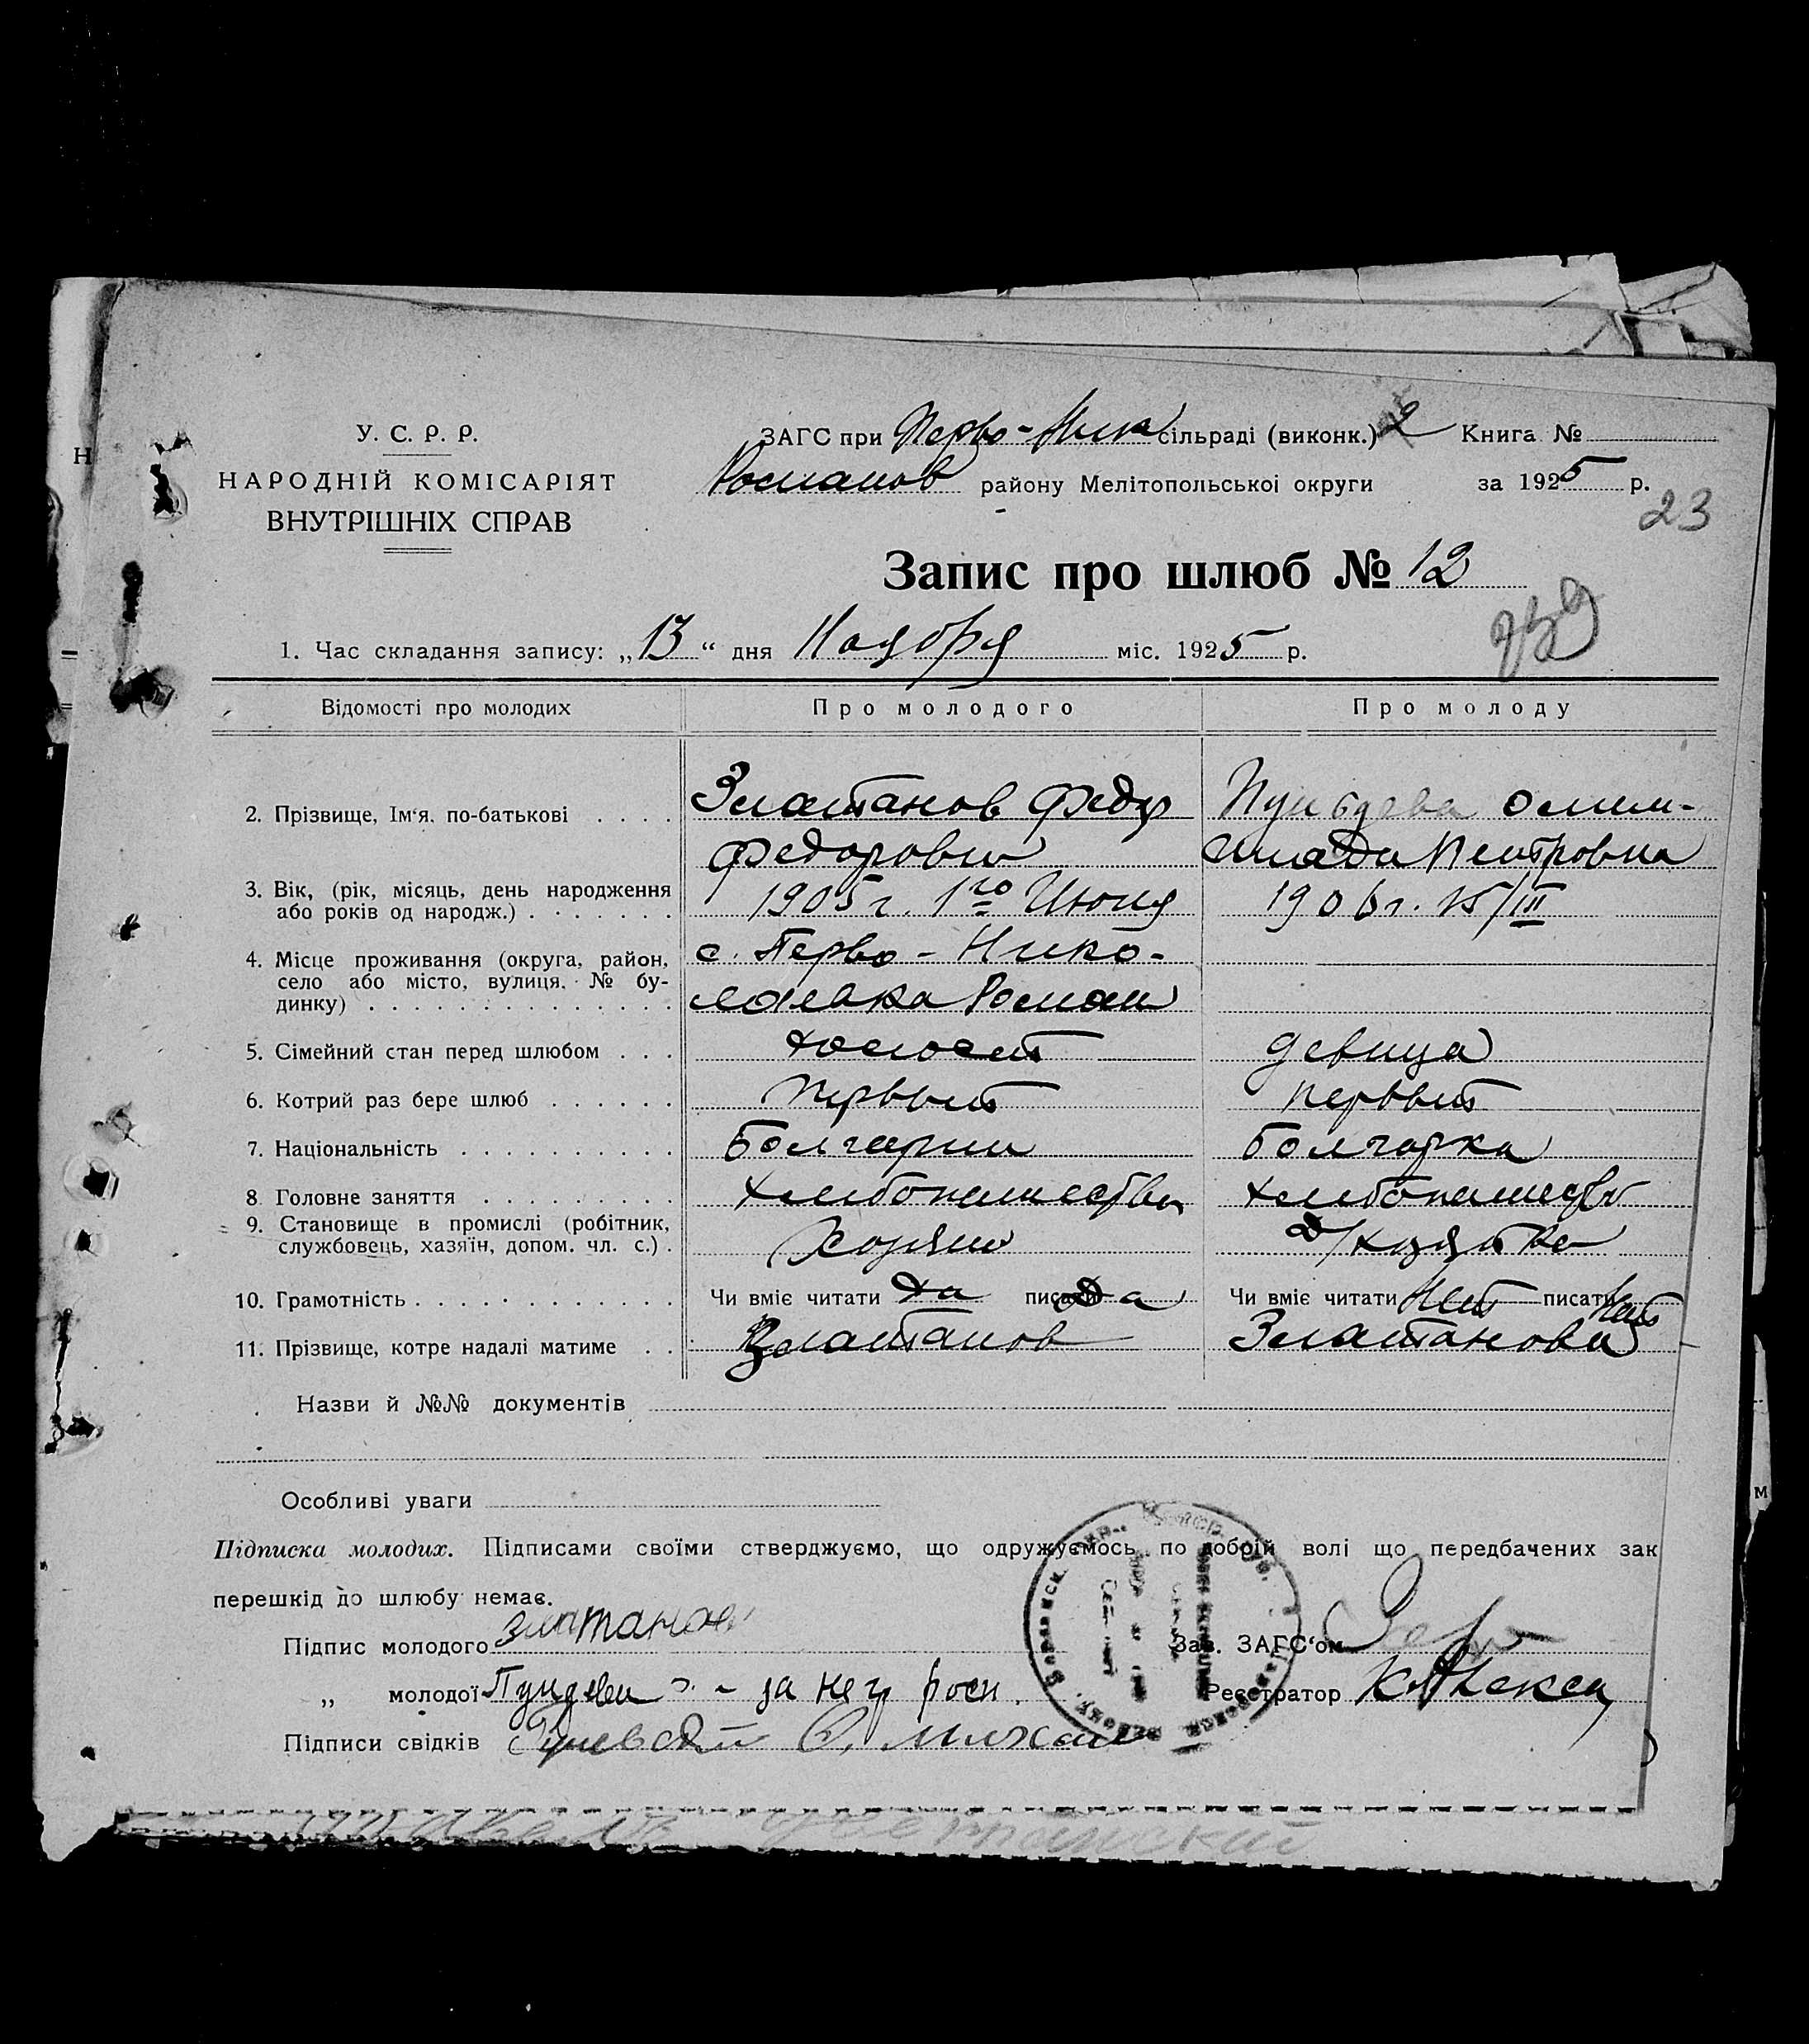 У. С. Р. Р.
НАРОДНІЙ КОМІСАРІЯТ
ВНУТРІШНІХ СПРАВ
ЗАГС при Перво-Ник сільраді (виконк.) 2 Книга №
Романов району Мелітопольської округи за 1925 р.
23
Запис про шлюб № 12
1. Час складання запису: „13“ дня Ноября міс. 1925 р.
Відомості про молодих Про молодого Про молоду
2. Прізвище, Ім'я, по-батькові Златанов Федор
Федорович Петровна
3. Вік, (рік, місяць, день народження 1905 г. 1го Июня 1906 г. 15/III
або років од народж.)
4. Місце проживання (округа, район, с. Перво-Нико-
село або місто, вулиця, № бу- лаевка Роман
динку)
5. Сімейний стан перед шлюбом холост девица
6. Котрий раз бере шлюб первый первый
7. Національність Болгарин Болгарка
8 Головне заняття хлебопашество хлебопашество
9. Становище в промислі (робітник,
службовець, хазяїн, допом. чл. с.) Хозяин д/хозяйка
10. Грамотність Чи вміє читати да писати да Чи вміє читати Нет писати Нет
11. Прізвище, котре надалі матиме Златанов Златанова
Назви й №№ документів
Особливі уваги
Підписка молодих. Підписами своїми стверджуємо, що одружуємось по добрій волі що передбачених зак
перешкід до шлюбу немає.
Підпис молодого Златанов Зав. ЗАГС'ом
„ молодої за негр росп. Реєстратор
Підписи свідків